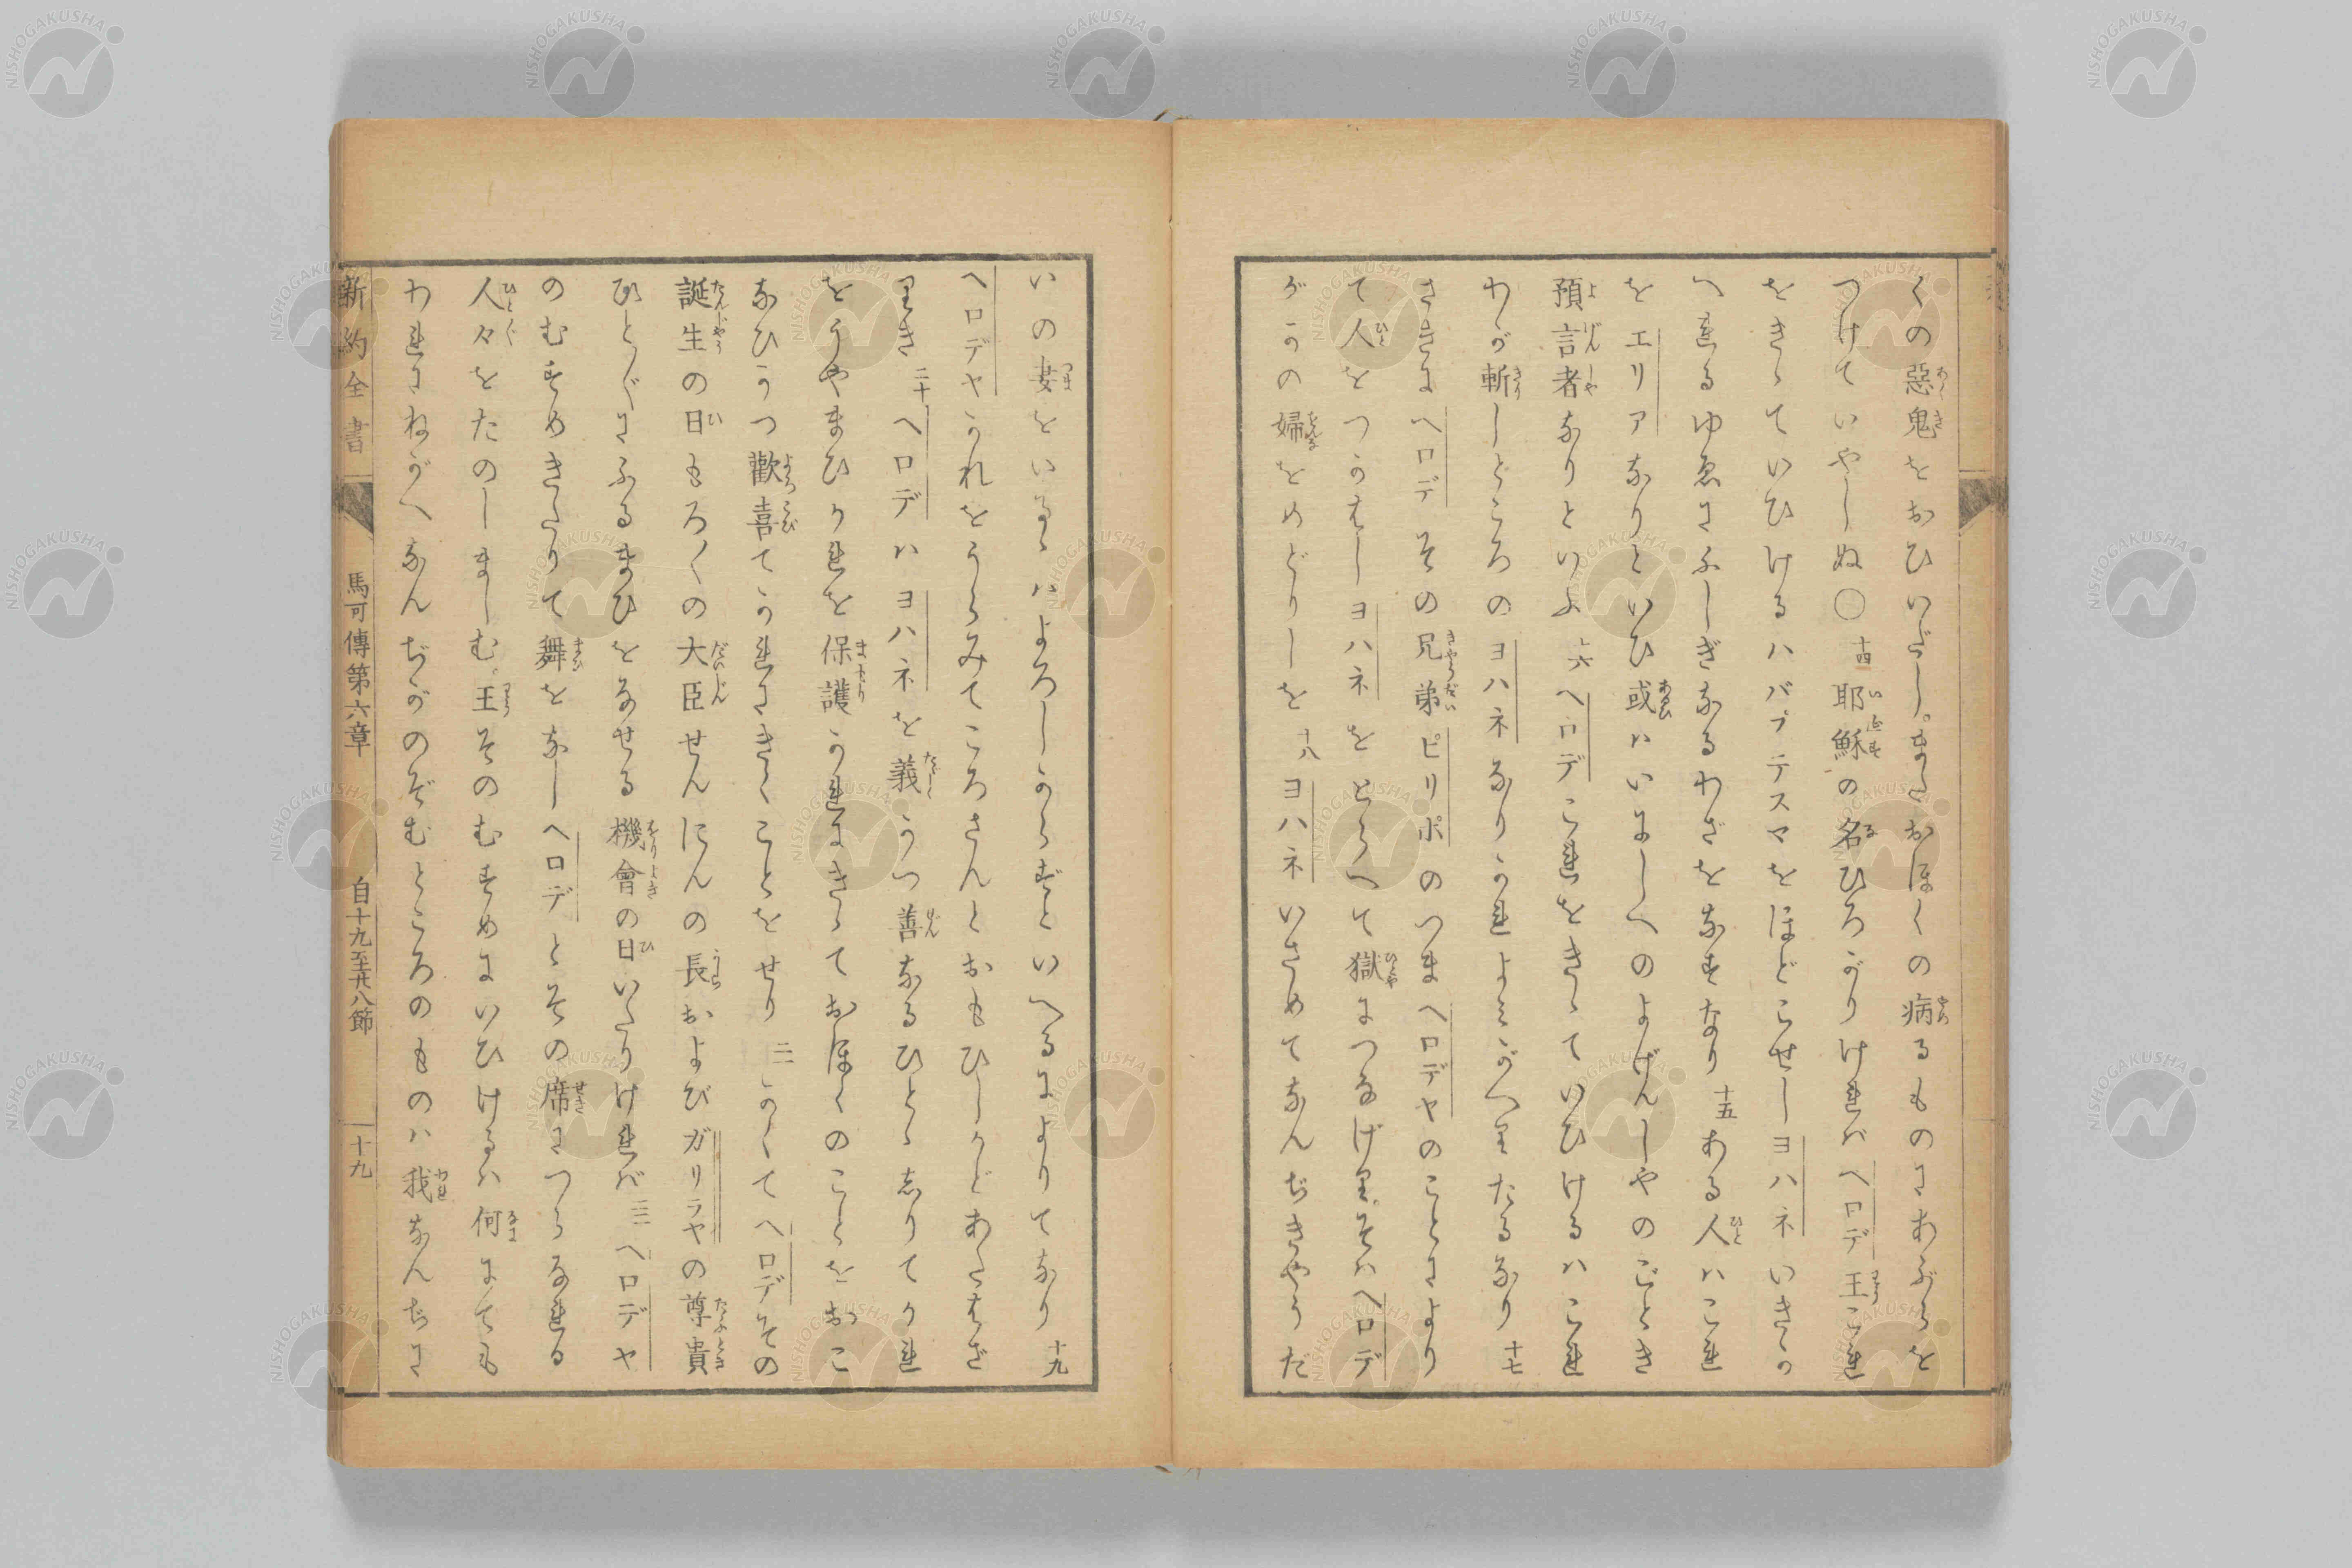 くの惡鬼をおひいだし。またおほくの病るものにあぶらを
つけていやしぬ〇十四耶穌の名ひろがりけれバヘロデ王これ
をきゝていひけるハバプテスマをほどこせしヨハネいきか
へれるゆゑにふしぎなるわざをなすなり十五ある人ハこれ
をエリアなりといひ或ハいにしへのよげんしやのごとき
預言者なりといふ十六ヘロデこれをきゝていひけるハこれ
わが斬しところのヨハネなりかれよみがへりたるなり十七
さきにヘロデその兄弟ピリポのつまヘロデヤのことにより
て人をつかはしヨハネをとらへて獄につなげり。そハヘロデ
がかの婦をめどりしを十八ヨハネいさめてなんぢきやうだ
いの妻をいるゝハよろしからずといへるによりてなり十九
ヘロデヤかれをうらみてころさんとおもひしかどあたはざ
りき二十ヘロデハヨハネを義かつ善なるひとゝ志りてかれ
をうやまひかれを保護かれにきゝておほくのことをおこ
なひかつ歡喜てかれにきくことをせり二一かくてヘロデその
誕生の日もろ〱の大臣せんにんの長およびガリラヤの尊貴
ひと〲にふるまひをなせる機會の日いたりけれバ二二ヘロデヤ
のむすめきたりて舞をなしヘロデとその席につらなれる
人々をたのしましむ。王そのむすめにいひけるハ何にても
われにねがへなんぢがのぞむところのものハ我なんぢに
新約全書 馬可傳第六章 自十九至廿八節 十九
NISHOGAKUSHA